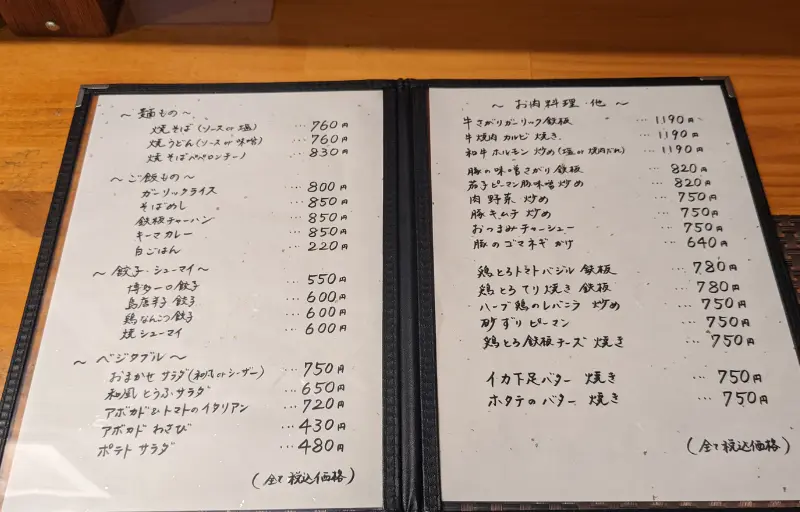 ～ 麺もの ～
焼そば (ソース or 塩) … 760円
焼うどん (ソース or 味噌) … 760円
焼そばペペロンチーノ … 830円
～ ご飯もの ～
ガーリックライス … 800円
そばめし … 850円
鉄板チャーハン … 850円
キーマカレー … 850円
白ごはん … 220円
～ 餃子・シューマイ ～
博多一口餃子 … 550円
島唐辛子 餃子 … 600円
鶏なんこつ餃子 … 600円
焼シューマイ … 600円
～ ベジタブル ～
おまかせ サラダ (和風 or シーザー) … 750円
和風 とうふサラダ … 650円
アボカド&トマトのイタリアン … 720円
アボカド わさび … 430円
ポテト サラダ … 480円
(全て税込価格)
～ お肉料理・他 ～
牛さがりガーリック鉄板 … 1190円
牛焼肉 カルビ 焼き … 1190円
和牛ホルモン 炒め (塩 or 焼肉だれ) … 1190円
豚の味噌さがり 鉄板 … 820円
茄子ピーマン豚味噌炒め … 820円
肉野菜 炒め … 750円
豚キムチ 炒め … 750円
おつまみチャーシュー … 750円
豚のゴマネギがけ … 640円
鶏とろトマトバジル 鉄板 … 780円
鶏とろ てり焼き 鉄板 … 780円
ハーブ鶏のレバニラ 炒め … 750円
砂ずり ピーマン … 750円
鶏とろ鉄板チーズ 焼き … 750円
イカ下足バター 焼き … 750円
ホタテのバター 焼き … 750円
(全て税込価格)